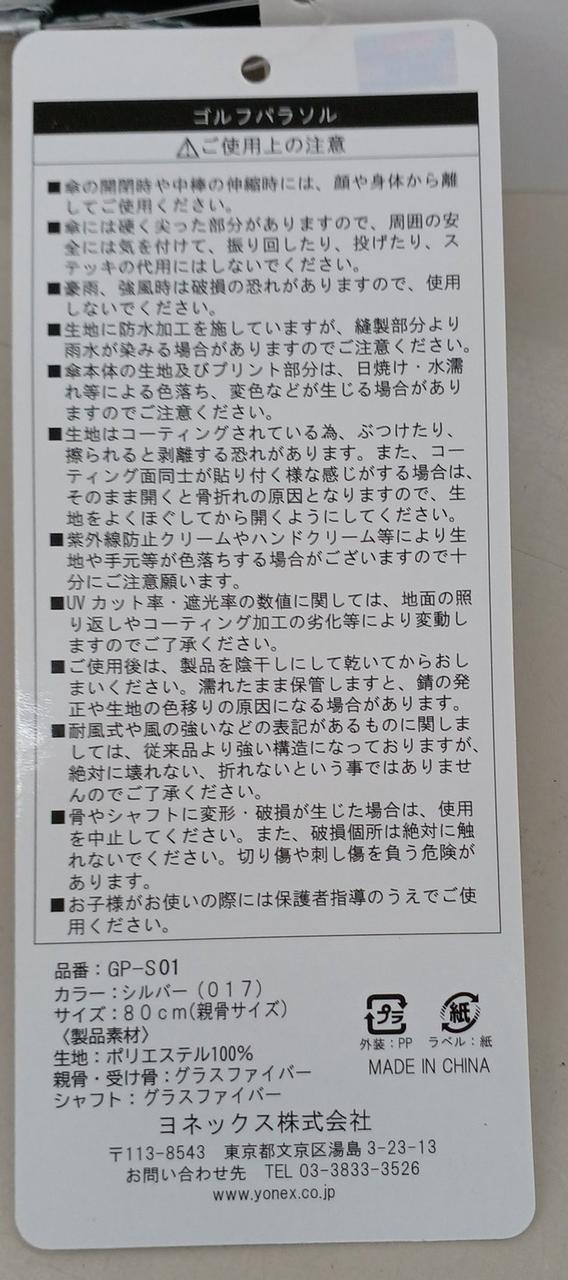 ゴルフパラソル
⚠ご使用上の注意
■傘の開閉時や中棒の伸縮時には、顔や身体から離
してご使用ください。
■傘には硬く尖った部分がありますので、周囲の安
全には気を付けて、振り回したり、投げたり、ス
テッキの代用にはしないでください。
■豪雨、強風時は破損の恐れがありますので、使用
しないでください。
■生地に防水加工を施していますが、縫製部分より
雨水が染みる場合がありますのでご注意ください。
■傘本体の生地及びプリント部分は、日焼け・水濡
れ等による色落ち、変色などが生じる場合があり
ますのでご注意ください。
■生地はコーティングされている為、ぶつけたり、
擦られると剥離する恐れがあります。また、コー
ティング面同士が貼り付く様な感じがする場合は、
そのまま開くと骨折れの原因となりますので、生
地をよくほぐしてから開くようにしてください。
■紫外線防止クリームやハンドクリーム等により生
地や手元等が色落ちする場合がございますので十
分にご注意願います。
■UVカット率・遮光率の数値に関しては、地面の照
り返しやコーティング加工の劣化等により変動し
ますのでご了承ください。
■ご使用後は、製品を陰干しにして乾いてからおし
まいください。濡れたまま保管しますと、錆の発
正や生地の色移りの原因になる場合があります。
■耐風式や風の強いなどの表記があるものに関しま
しては、従来品より強い構造になっておりますが、
絶対に壊れない、折れないという事ではありませ
んのでご了承ください。
■骨やシャフトに変形・破損が生じた場合は、使用
を中止してください。また、破損個所は絶対に触
れないでください。切り傷や刺し傷を負う危険が
あります。
■お子様がお使いの際には保護者指導のうえでご使
用ください。
品番：GP-S01
カラー：シルバー（017）
サイズ：80cm(親骨サイズ)
〈製品素材〉
生地：ポリエステル100%
親骨・受け骨：グラスファイバー
シャフト：グラスファイバー
プラ 紙
外装：PP ラベル：紙
MADE IN CHINA
ヨネックス株式会社
〒113-8543 東京都文京区湯島3-23-13
お問い合わせ先 TEL 03-3833-3526
www.yonex.co.jp